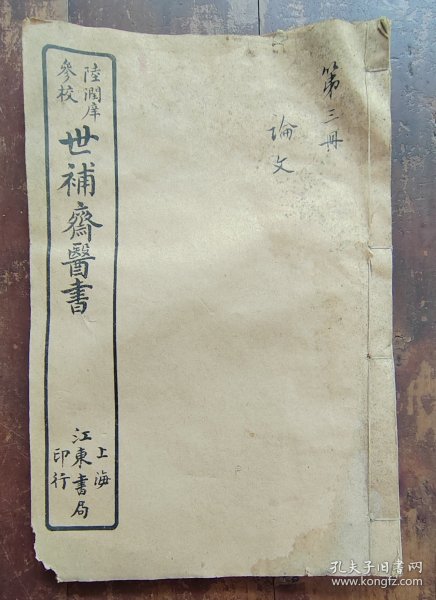 第三册
論文
陸潤庠
參校
世補齋醫書
上海
江東書局
印行
孔夫子旧书网
www.kongfz.com